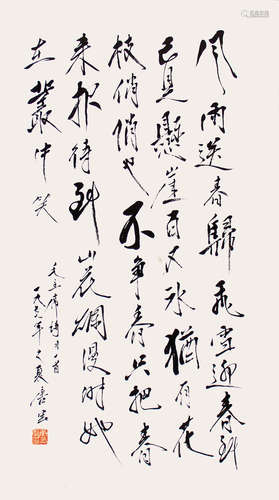 风雨送春歸飛雪迎春到
已是懸崖百丈冰猶有花
枝俏俏也不争春只把春
来报待到山花爛漫时她
在叢中笑
毛主席诗词一首
一九年之夏